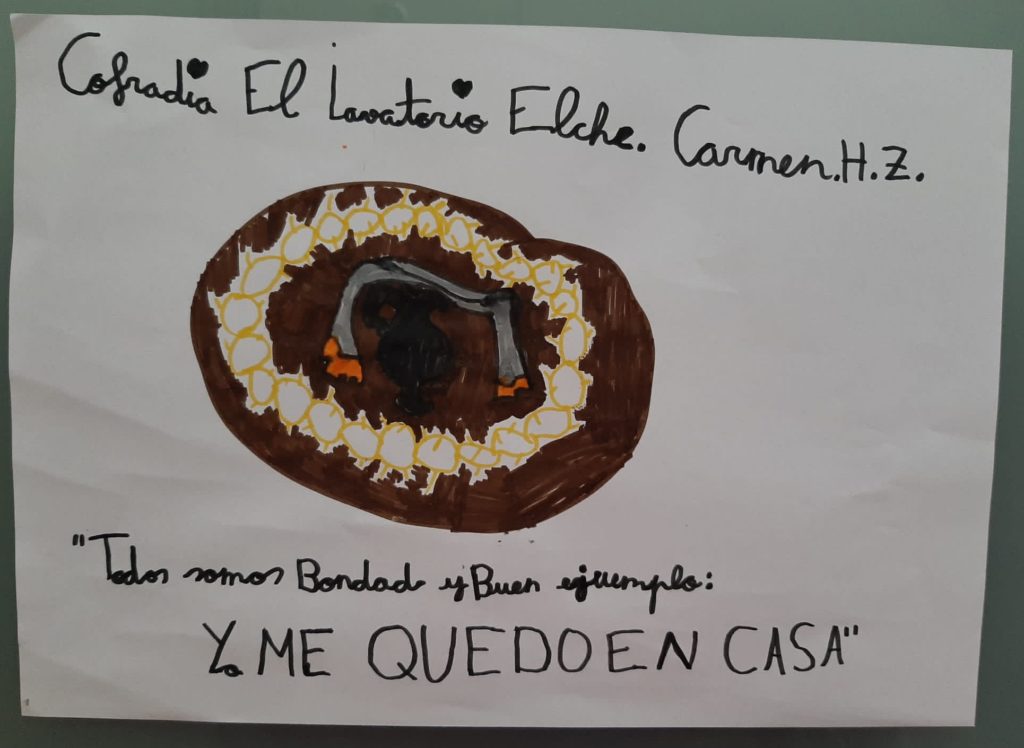 Cofradia El Lavatorio Elche. Carmen.H.Z.
"Todos somos Bondad y Buen ejuemplo:
Yo ME QUEDO EN CASA"